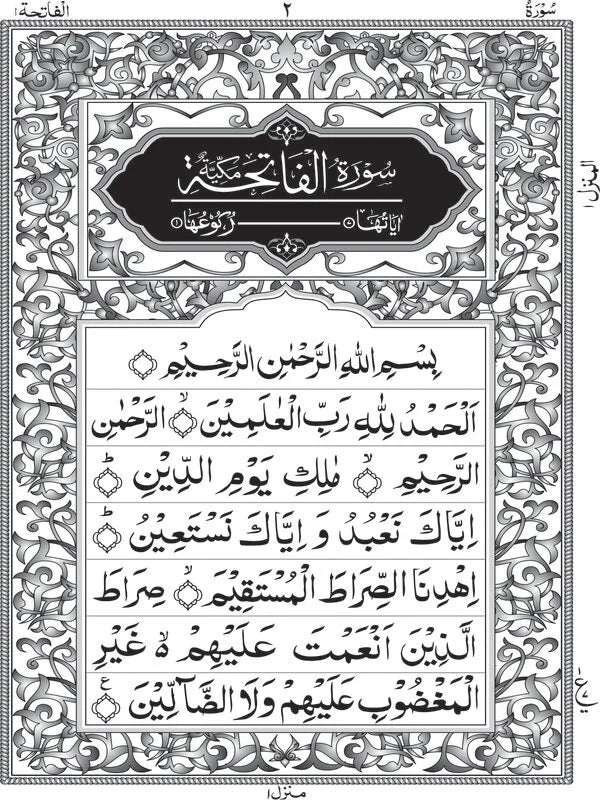 سُوْرَةُ ٢ الْفَاتِحَة ١
سُوْرَةُ الْفَاتِحَةِ مَكِّيَّةٌ
اٰيَاتُهَا ٧ رُكُوْعُهَا ١
بِسْمِ اللّٰهِ الرَّحْمٰنِ الرَّحِيْمِ
اَلْحَمْدُ لِلّٰهِ رَبِّ الْعٰلَمِيْنَ ۙ الرَّحْمٰنِ
الرَّحِيْمِ ۙ مٰلِكِ يَوْمِ الدِّيْنِ ؕ
اِيَّاكَ نَعْبُدُ وَ اِيَّاكَ نَسْتَعِيْنُ ؕ
اِهْدِنَا الصِّرَاطَ الْمُسْتَقِيْمَ ۙ صِرَاطَ
الَّذِيْنَ اَنْعَمْتَ عَلَيْهِمْ ۙ۬ غَيْرِ
الْمَغْضُوْبِ عَلَيْهِمْ وَلَا الضَّآلِّيْنَ ع
المنزل ١
منزل ١